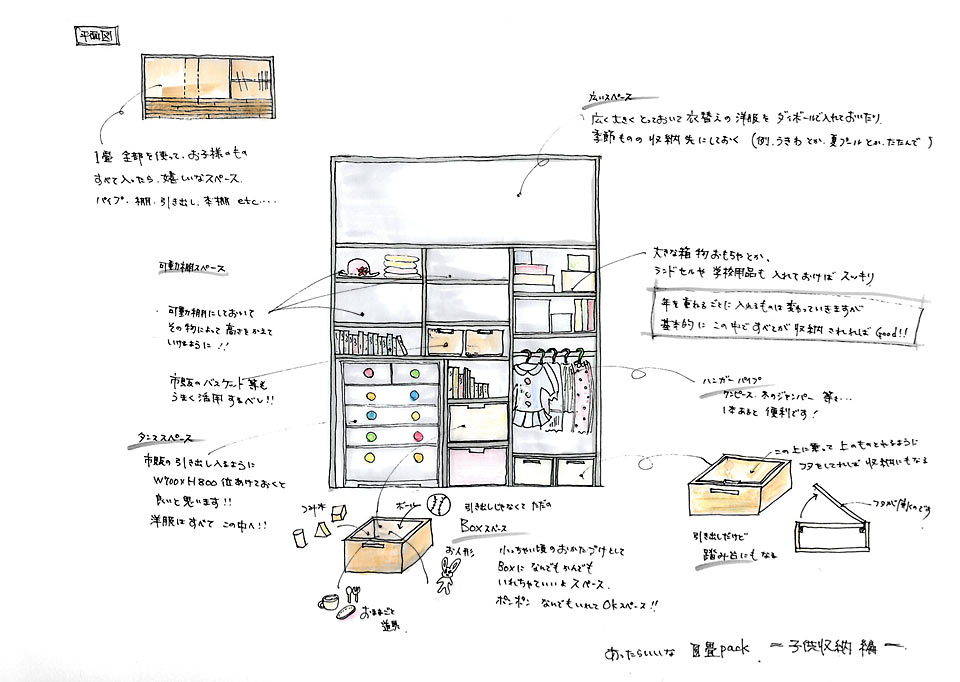 平面図
1畳 全部を使って、お子様のもの
すべて入ったら、嬉しいなスペース。
パイプ・棚・引き出し、本棚 etc‥‥
広いスペース
広く大きく とっておいて 衣替えの 洋服を ダンボールで入れておいたり、
季節ものの 収納 先にしておく (例、うきわ とか、夏プール とか、たたんで)
可動棚スペース
可動棚にしておいて
その物によって 高さをかえて
いけるように!!
市販のバスケット等も
うまく活用 するべし!!
大きな箱 物おもちゃとか、
ランドセルや 学校用品も 入れておけば スッキリ
年を重ねるごとに 入れるものは 変わっていきますが
基本的に この中ですべてが 収納 されれば Good!!
ハンガーパイプ
ワンピース・冬のジャンパー 等も‥‥
1本あると 便利です!
タンススペース
市販の 引き出し入るように
W700×H800 位あけておくと
良いと思います!!
洋服は すべて この中へ!!
つみ木
ボール
お人形
おままごと
道具
引き出しじゃなくて ただの
Boxスペース
小っちゃい頃の おかたづけとして
Boxに なんでもかんでも
いれちゃていいよ スペース。
ポンポン なんでもいれて OKスペース!!
この上に乗って 上のものとれるように
フタをしてれば 収納にもなる
引き出しだけど
踏み台にも なる
あったらいいな 1畳pack ~子供収納 編~